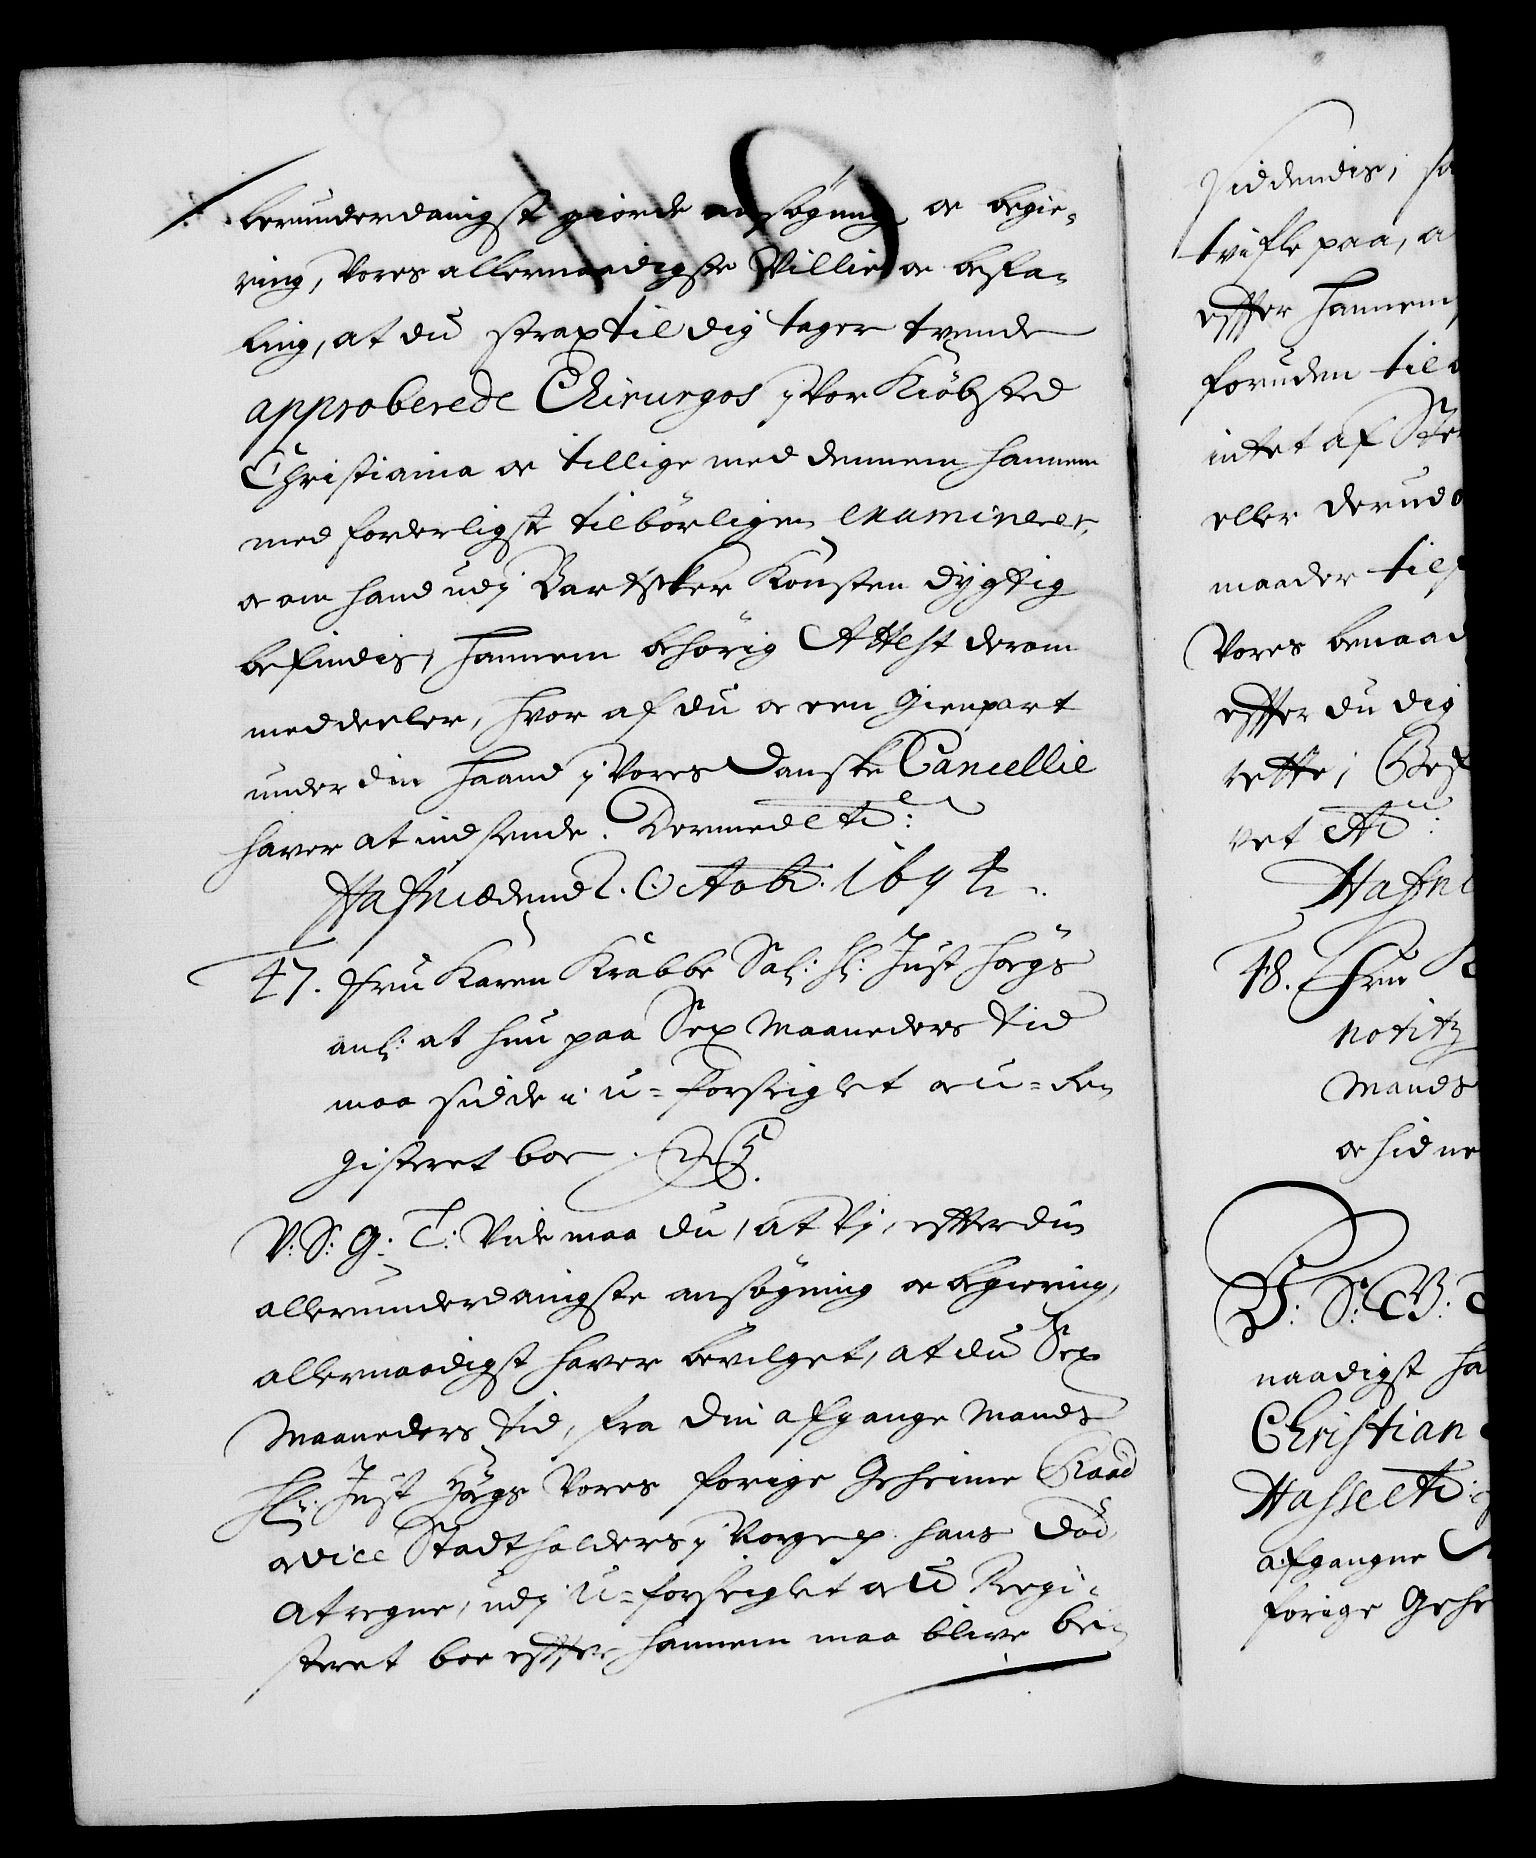 lerunderdanigst giorde ansøgning oc begie-
ring, Vores allernaadigste Villie oc befa-
ling, at du strax til dig tager tvende
approberede Chirurgos j Vor Kiøbsted
Christiania oc tillige med dennem hannem
med forderligste tilbørligen examinerer,
oc om hand udj Bartskier Konsten dygtig
befindis, hannem behørig Attest derom
meddeeler, hvor af du oc een Gienpart
under din haand j Vores Danske Cancellie
haver at indsende. Dermed etc:
Hafniæ den 2. Octobr. 1694.
47. Fru Karen Krabbe Sal: Hr: Just Høgs
anl: at hun paa Sex Maaneders tid
maa sidde i u-forseiglet oc u-Re-
gisteret boe.
V: S: G: T: Vide maa du, at Vj, efter din
allerunderdanigste ansøgning oc begiering,
allernaadigst haver bevilget, at du Sex
Maaneders tid, fra din afgangne Mands
Hr: Just Høgs Vores forige Geheime Raad
oc vice Stadtholders j Norge hans død
at regne, udj u-forseiglet oc u Regi-
steret boe efter hannem maa blive be-
siddendis, sa
tvifle paa, a
effter hannem,
foruden til
intet af Ster
eller derud
maader tilf
Vores benaad
effter du dig
rette; Bef
vet etc:
Hafni
48. Fru K
notitz
Mands
oc hid ne
V: S: G: T
naadigst ha
Christian
Hasse etc:
afgangne
forige Gehe